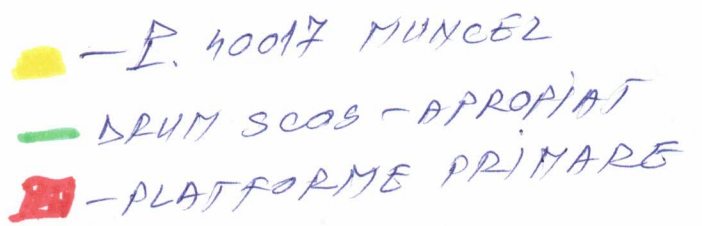 - P. 40017 MUNCEL
- DRUM SCOS - APROPIAT
- PLATFORME PRIMARE